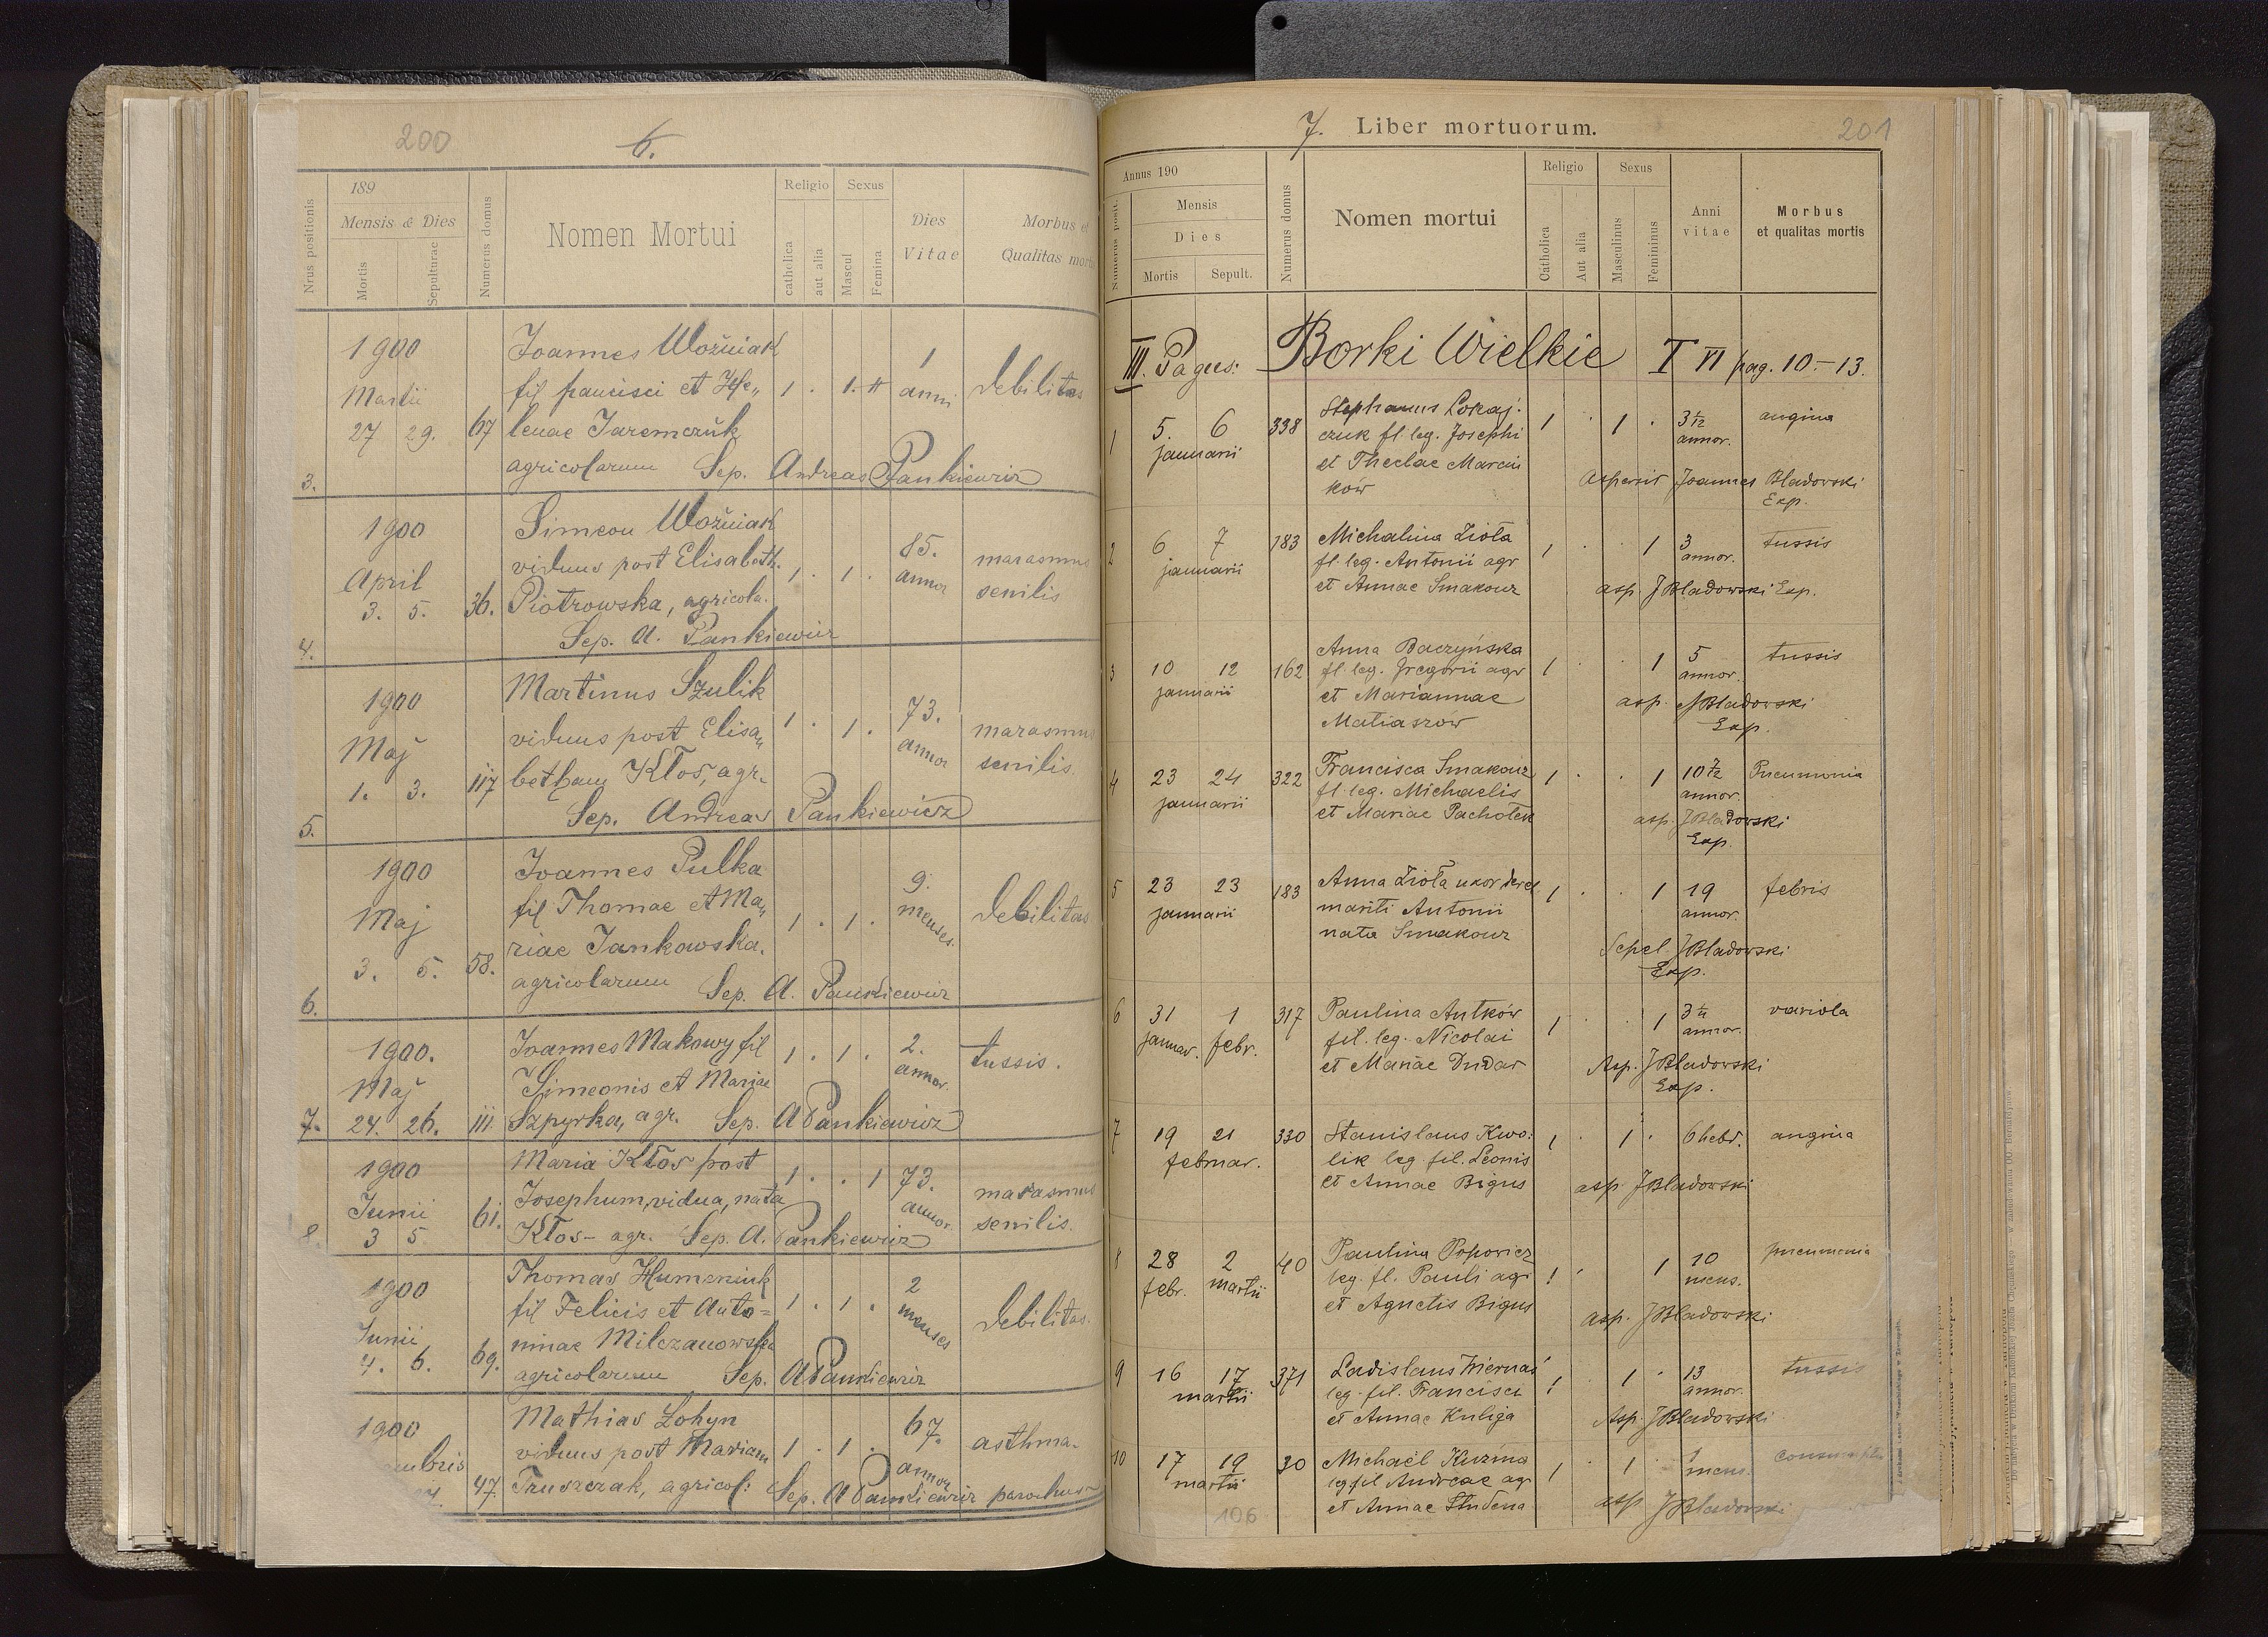 200
6.
189
Nrus positionis
Mensis & Dies
Mortis
Sepulturae
Numerus domus
Nomen Mortui
Religio
catholica
aut alia
Sexus
Mascul
Femina
Dies
Vitae
Morbus et
Qualitas mort
1900
Martii
27 29.
67
3.
Joannes Woźniak
fil francisci et He„
lenae Jaremczŭk
agricolarum Sep. Andreas Pankiewicz
1 . 1.
1
anni
debilitas
1900
April
3. 5.
36.
4.
Simeon Woźniak
viduus post Elisabeth.
Piotrowska, agricola.
Sep. A. Pankiewicz
1 . 1 .
85.
annor
marasmus
senilis
1900
Maj
1. 3.
117
5.
Martinus Szulik
viduus post Elisa„
betham Kłos, agr.
Sep. Andreas Pankiewicz
1 . 1 .
73.
annor
marasmus
senilis.
1900
Maj
3. 5.
58.
6.
Joannes Pulka
fil Thomae et Ma„
riae Jankowska.
agricolarum Sep. A. Pankiewicz
1 . 1 .
9.
menses.
debilitas
1900.
Maj
24. 26.
111.
7.
Joannes Makowy fil
Simeonis et Mariae
Szpyrka, agr. Sep. A Pankiewicz
1 . 1 .
2.
annor.
tussis.
1900
Junii
3 5.
61.
8.
Maria Kłos post
Josephum, vidua, nata
Kłos - agr. Sep. A. Pankiewicz
1 . . 1
73.
annor.
marasmus
senilis.
1900
Junii
4. 6.
69.
Thomas Humeniuk
fil Felicis et Anto=
ninae Milczanowska
agricolarum Sep. A Pankiewicz
1 . 1 .
2
menses
debilitas.
1900
embris
47.
Mathias Lohyn
viduus post Mariam
Truszczak, agricol: Sep. A Pankiewicz parochus
1 . 1 .
67.
annor
asthma.
7. Liber mortuorum.
201
Annus 190
Numerus posit.
Mensis
Dies
Mortis
Sepult.
Numerus domus
Nomen mortui
Religio
Catholica
Aut alia
Sexus
Masculinus
Femininus
Anni
vitae
Morbus
et qualitas mortis
III. Pagus: Borki Wielkie T VI pag. 10.-13.
1
5. 6
januarii
338
Stephanus Lokaj-
czuk fl. leg. Josephi
et Theclae Marcin
ków
1 . 1 .
3 1/2
annor.
angina
Aspersit Joannes Bladowski
Exp.
2
6 7
januarii
183
Michalina Zioła
fl. leg. Antonii agr
et Annae Smakouz
1 . . 1
3
annor.
tussis
asp JBladowski Exp.
3
10 12
januarii
162
Anna Baczyńska
fl. leg. Gregorii agr
et Mariannae
Matiaszow
1 . . 1
5
annor.
tussis
asp. JBladowski
Exp.
4
23 24
januarii
322
Francisca Smakouz
fl. leg. Michaelis
et Mariae Pachołek
1 . . 1
10 7/12
annor.
Pneumonia
asp. JBladowski
Exp.
5
23 23
januarii
183
Anna Zioła uxor
mariti Antonii
nata Smakouz
1 . . 1
19
annor.
febris
Sepel JBladowski
Exp.
6
31 1
januar. febr.
317
Paulina Antków
fil. leg. Nicolai
et Mariae Dudar
1 . . 1
annor.
variola
Asp. JBladowski
Exp.
7
19 21
februar.
330
Stanislaus Kwo:
lik leg. fil. Leonis
et Annae Bigus
1 . 1 .
6 hebd.
angina
asp. JBladowski
8
28 2
febr. martii
40
Paulina Popowicz
leg. fl. Pauli agr
et Agnetis Bigus
1 . 1
10
mens.
pneumonia
asp. JBladowski
9
16 17
martii
371
Ladislaus Wiernaś
leg. fil. Francisci
et Annae Kuliga
1 . 1 .
13
annor.
tussis
Asp. JBladowski
10
17 19
martii
30
Michaël Kuźma
leg fil Andreae agr
et Annae Studena
1 . 1 .
1
mens.
asp JBladowski
106